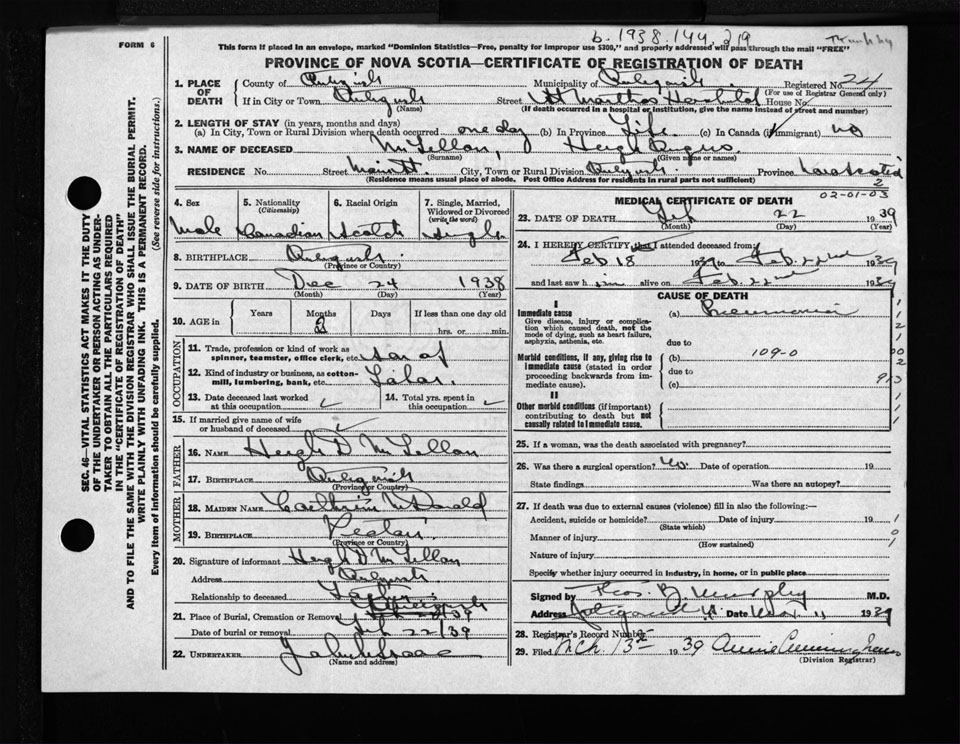 b. 1938. 144. 219
FORM 6
This form if placed in an envelope, marked "Dominion Statistics—Free, penalty for improper use $300," and properly addressed will pass through the mail "FREE"
PROVINCE OF NOVA SCOTIA—CERTIFICATE OF REGISTRATION OF DEATH
1. PLACE OF DEATH County of Antigonish Municipality of Antigonish Registered No. 24
(For use of Registrar General only)
If in City or Town Antigonish Street St Marthas Hospital House No.
(Name) (If death occurred in a hospital or institution, give the name instead of street and number)
2. LENGTH OF STAY (in years, months and days)
(a) In City, Town or Rural Division where death occurred one day (b) In Province Life (c) In Canada (if immigrant) no
3. NAME OF DECEASED McLellan, Hugh
(Surname) (Given name or names)
RESIDENCE No. Street Main St. City, Town or Rural Division Antigonish Province Nova Scotia
(Residence means usual place of abode. Post Office Address for residents in rural parts not sufficient)
2
02-01-03
4. Sex 5. Nationality (Citizenship) 6. Racial Origin 7. Single, Married, Widowed or Divorced (write the word)
Male Canadian Scotch Single
8. BIRTHPLACE Antigonish
(Province or Country)
9. DATE OF BIRTH Dec 24 1938
(Month) (Day) (Year)
10. AGE in Years Months Days If less than one day
2 hrs. or min.
OCCUPATION
11. Trade, profession or kind of work as spinner, teamster, office clerk, etc.
12. Kind of industry or business, as cotton-mill, lumbering, bank, etc.
13. Date deceased last worked at this occupation
14. Total yrs. spent in this occupation
15. If married give name of wife or husband of deceased
FATHER
16. NAME Hugh D McLellan
17. BIRTHPLACE Antigonish
(Province or Country)
MOTHER
18. MAIDEN NAME
19. BIRTHPLACE
(Province or Country)
20. Signature of informant Hugh D McLellan
Address Antigonish
Relationship to deceased Father
21. Place of Burial, Cremation or Removal
Date of burial or removal Feb 22/39
22. UNDERTAKER
(Name and address)
MEDICAL CERTIFICATE OF DEATH
23. DATE OF DEATH Feb 22 1939
(Month) (Day) (Year)
24. I HEREBY CERTIFY that I attended deceased from:
Feb 18 1939 to Feb. 22nd 1939
and last saw him alive on Feb. 22nd 1939
CAUSE OF DEATH
I
Immediate cause
Give disease, injury or complication which caused death, not the mode of dying, such as heart failure, asphyxia, asthenia, etc.
(a) Pneumonia
due to
Morbid conditions, if any, giving rise to immediate cause (stated in order proceeding backwards from immediate cause).
(b) 109-0
due to
(c)
II
Other morbid conditions (if important) contributing to death but not causally related to immediate cause.
25. If a woman, was the death associated with pregnancy?
26. Was there a surgical operation? no. Date of operation 19
State findings Was there an autopsy?
27. If death was due to external causes (violence) fill in also the following:—
Accident, suicide or homicide? Date of injury 19
(State which)
Manner of injury
(How sustained)
Nature of injury
Specify whether injury occurred in industry, in home, or in public place
Signed by Thos. B. Murphy M.D.
Address Date 1939
28. Registrar's Record Number
29. Filed Mch. 13th 1939 Annie Cunningham
(Division Registrar)
SEC. 46—VITAL STATISTICS ACT MAKES IT THE DUTY
OF THE UNDERTAKER OR PERSON ACTING AS UNDERTAKER TO OBTAIN ALL THE PARTICULARS REQUIRED
IN THE "CERTIFICATE OF REGISTRATION OF DEATH"
AND TO FILE THE SAME WITH THE DIVISION REGISTRAR WHO SHALL ISSUE THE BURIAL PERMIT.
WRITE PLAINLY WITH UNFADING INK. THIS IS A PERMANENT RECORD.
Every item of information should be carefully supplied. (See reverse side for instructions.)